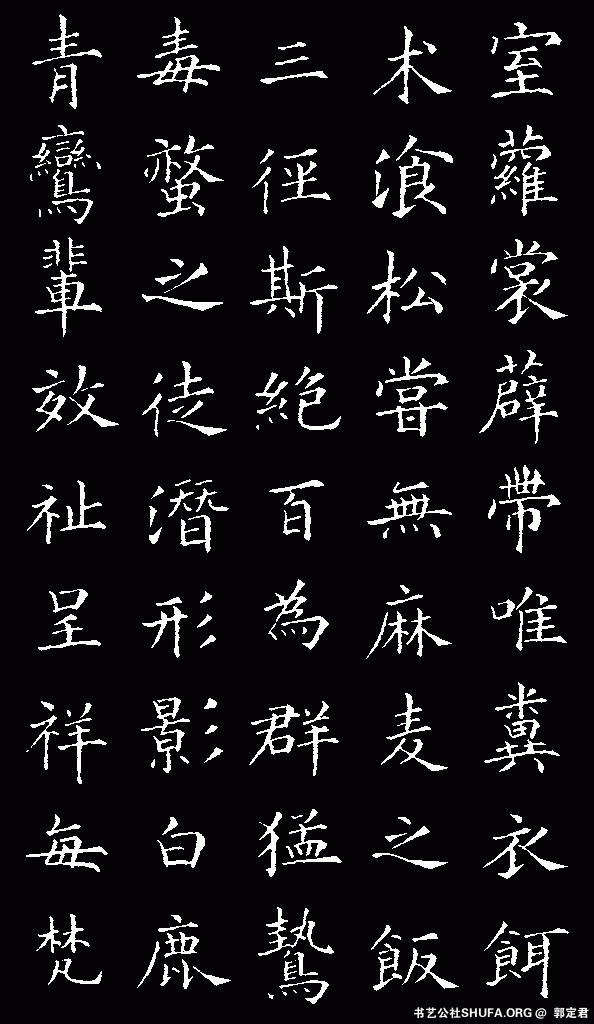 室蘿裳薜帶唯糞衣餌
术湌松嘗無麻麦之飯
三徑斯絕百為群猛鷙
毒螫之徒潛形影白鹿
青鸞輩效祉呈祥每梵
书艺公社SHUFA.ORG @ 郭定君